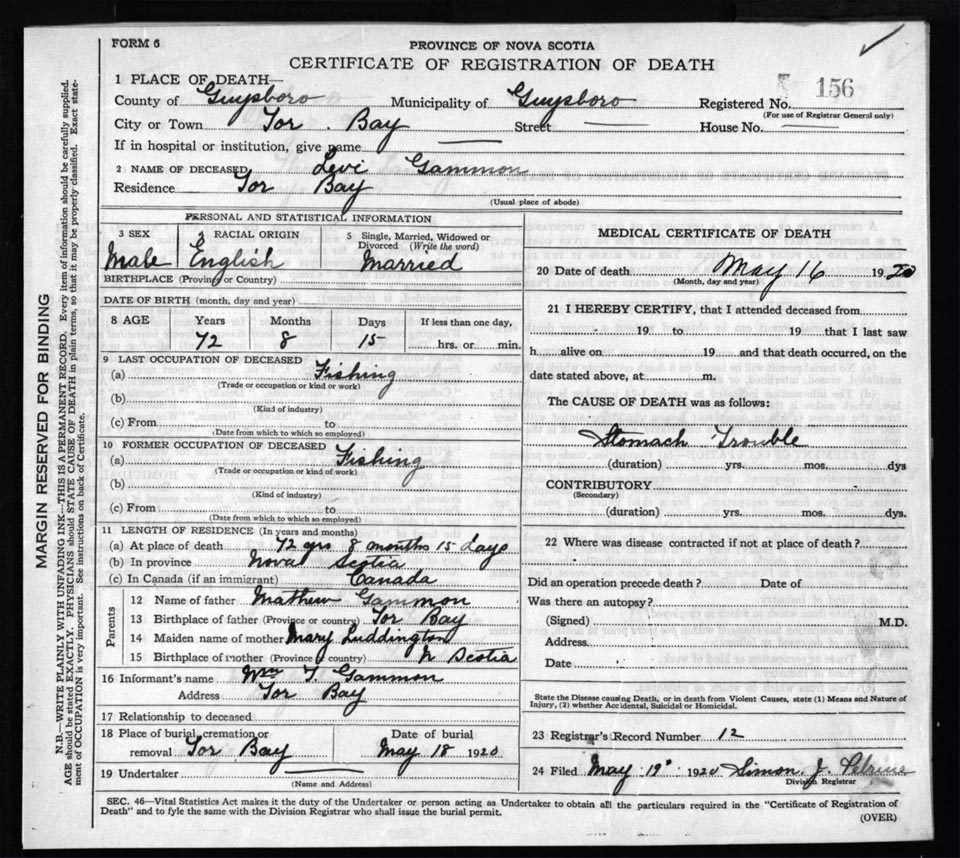 FORM 6
PROVINCE OF NOVA SCOTIA
CERTIFICATE OF REGISTRATION OF DEATH
1 PLACE OF DEATH—
County of Guysboro Municipality of Guysboro Registered No. 156
(For use of Registrar General only)
City or Town Tor Bay Street House No.
If in hospital or institution, give name
2 NAME OF DECEASED Levi Gammon
Residence Tor Bay
(Usual place of abode)
PERSONAL AND STATISTICAL INFORMATION
3 SEX RACIAL ORIGIN 5 Single, Married, Widowed or Divorced (Write the word)
Male English Married
BIRTHPLACE (Province or Country)
DATE OF BIRTH (month, day and year)
8 AGE Years Months Days If less than one day,
72 8 15 hrs. or min.
9 LAST OCCUPATION OF DECEASED
(a) Fishing
(Trade or occupation or kind of work)
(b)
(Kind of industry)
(c) From to
(Date from which to which so employed)
10 FORMER OCCUPATION OF DECEASED
(a) Fishing
(Trade or occupation or kind of work)
(b)
(Kind of industry)
(c) From to
(Date from which to which so employed)
11 LENGTH OF RESIDENCE (In years and months)
(a) At place of death 72 yrs 8 months 15 days
(b) In province Nova Scotia
(c) In Canada (if an immigrant) Canada
Parents
12 Name of father Mathew Gammon
13 Birthplace of father (Province or country) Tor Bay
14 Maiden name of mother Mary Luddington
15 Birthplace of mother (Province or country) N Scotia
16 Informant's name Wm T. Gammon
Address Tor Bay
17 Relationship to deceased
18 Place of burial, cremation or removal Tor Bay Date of burial May 18 1920
19 Undertaker
(Name and Address)
MEDICAL CERTIFICATE OF DEATH
20 Date of death May 16 1920
(Month, day and year)
21 I HEREBY CERTIFY, that I attended deceased from
19 to 19 that I last saw
h alive on 19 and that death occurred, on the
date stated above, at m.
The CAUSE OF DEATH was as follows:
Stomach Trouble
(duration) yrs. mos. dys
CONTRIBUTORY
(Secondary)
(duration) yrs. mos. dys.
22 Where was disease contracted if not at place of death?
Did an operation precede death? Date of
Was there an autopsy?
(Signed) M.D.
Address
Date
State the Disease causing Death, or in death from Violent Causes, state (1) Means and Nature of
Injury, (2) whether Accidental, Suicidal or Homicidal.
23 Registrar's Record Number 12
24 Filed May 19 1920 Simon J. Pelrine
Division Registrar
SEC. 46—Vital Statistics Act makes it the duty of the Undertaker or person acting as Undertaker to obtain all the particulars required in the "Certificate of Registration of
Death" and to fyle the same with the Division Registrar who shall issue the burial permit.
(OVER)
MARGIN RESERVED FOR BINDING
N.B.—WRITE PLAINLY WITH UNFADING INK—THIS IS A PERMANENT RECORD. Every item of information should be carefully supplied.
AGE should be stated EXACTLY. PHYSICIANS should STATE CAUSE OF DEATH in plain terms, so that it may be properly classified. Exact state-
ment of OCCUPATION is very important. See instructions on back of Certificate.